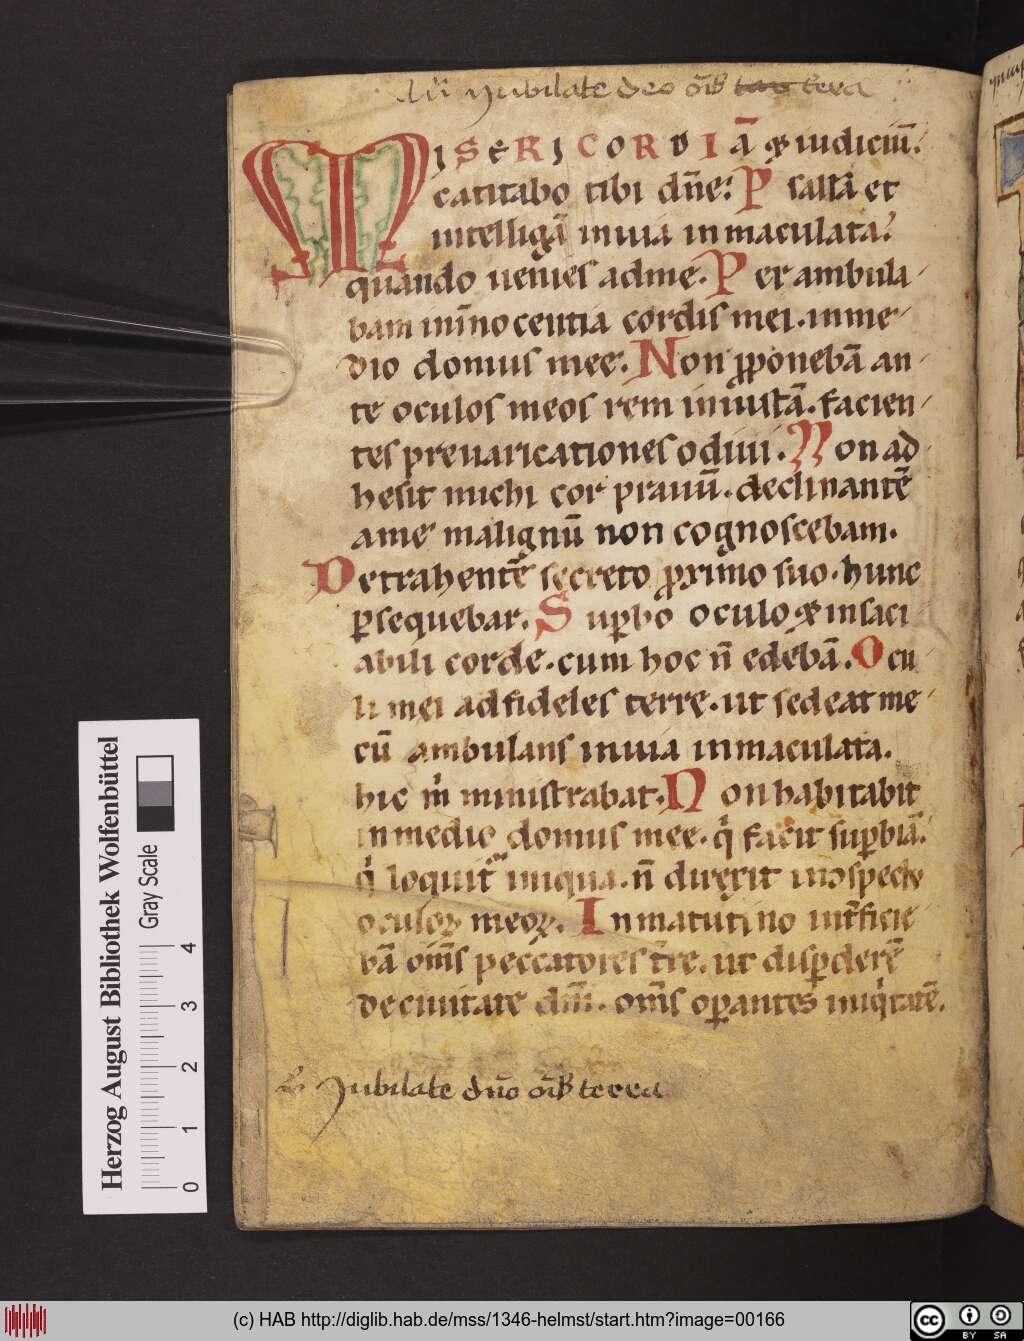 Jubilate deo om̄s terra
MISERICORDIĀ & iudiciū.
cantabo tibi dn̄e. Psallā et
intelligā inuia inmaculata.
quando uenies adme. Perambula
bam inīnocentia cordis mei. inme
dio domus mee. Non ꝓponebā an
te oculos meos rem iniustā. facien
tes preuaricationes odiui. Non ad
hesit michi cor prauū. declinantē
ame malignū non cognoscebam.
Detrahentē secreto ꝓximo suo. hunc
ꝑsequebar. Suꝑbo oculo & insaci
abili corde. cum hoc n̄ edebā. Ocu
li mei adfideles terre. ut sedeat me
cū ambulans inuia inmaculata.
hic m̄ ministrabat. Non habitabit
inmedio domus mee. q̄ facit suꝑbiā.
q̄ loquit᷑ iniqua. n̄ direxit incōspectu
oculoꝝ meoꝝ. Inmatutino int̄ficie
bā om̄s peccatores t̄re. ut disꝑderē
deciuitate dn̄i. om̄s oꝑantes iniq̇tatē.
Jubilate dn̄o om̄s terra
Herzog August Bibliothek Wolfenbüttel
Gray Scale
0 1 2 3 4
(c) HAB http://diglib.hab.de/mss/1346-helmst/start.htm?image=00166
cc BY SA